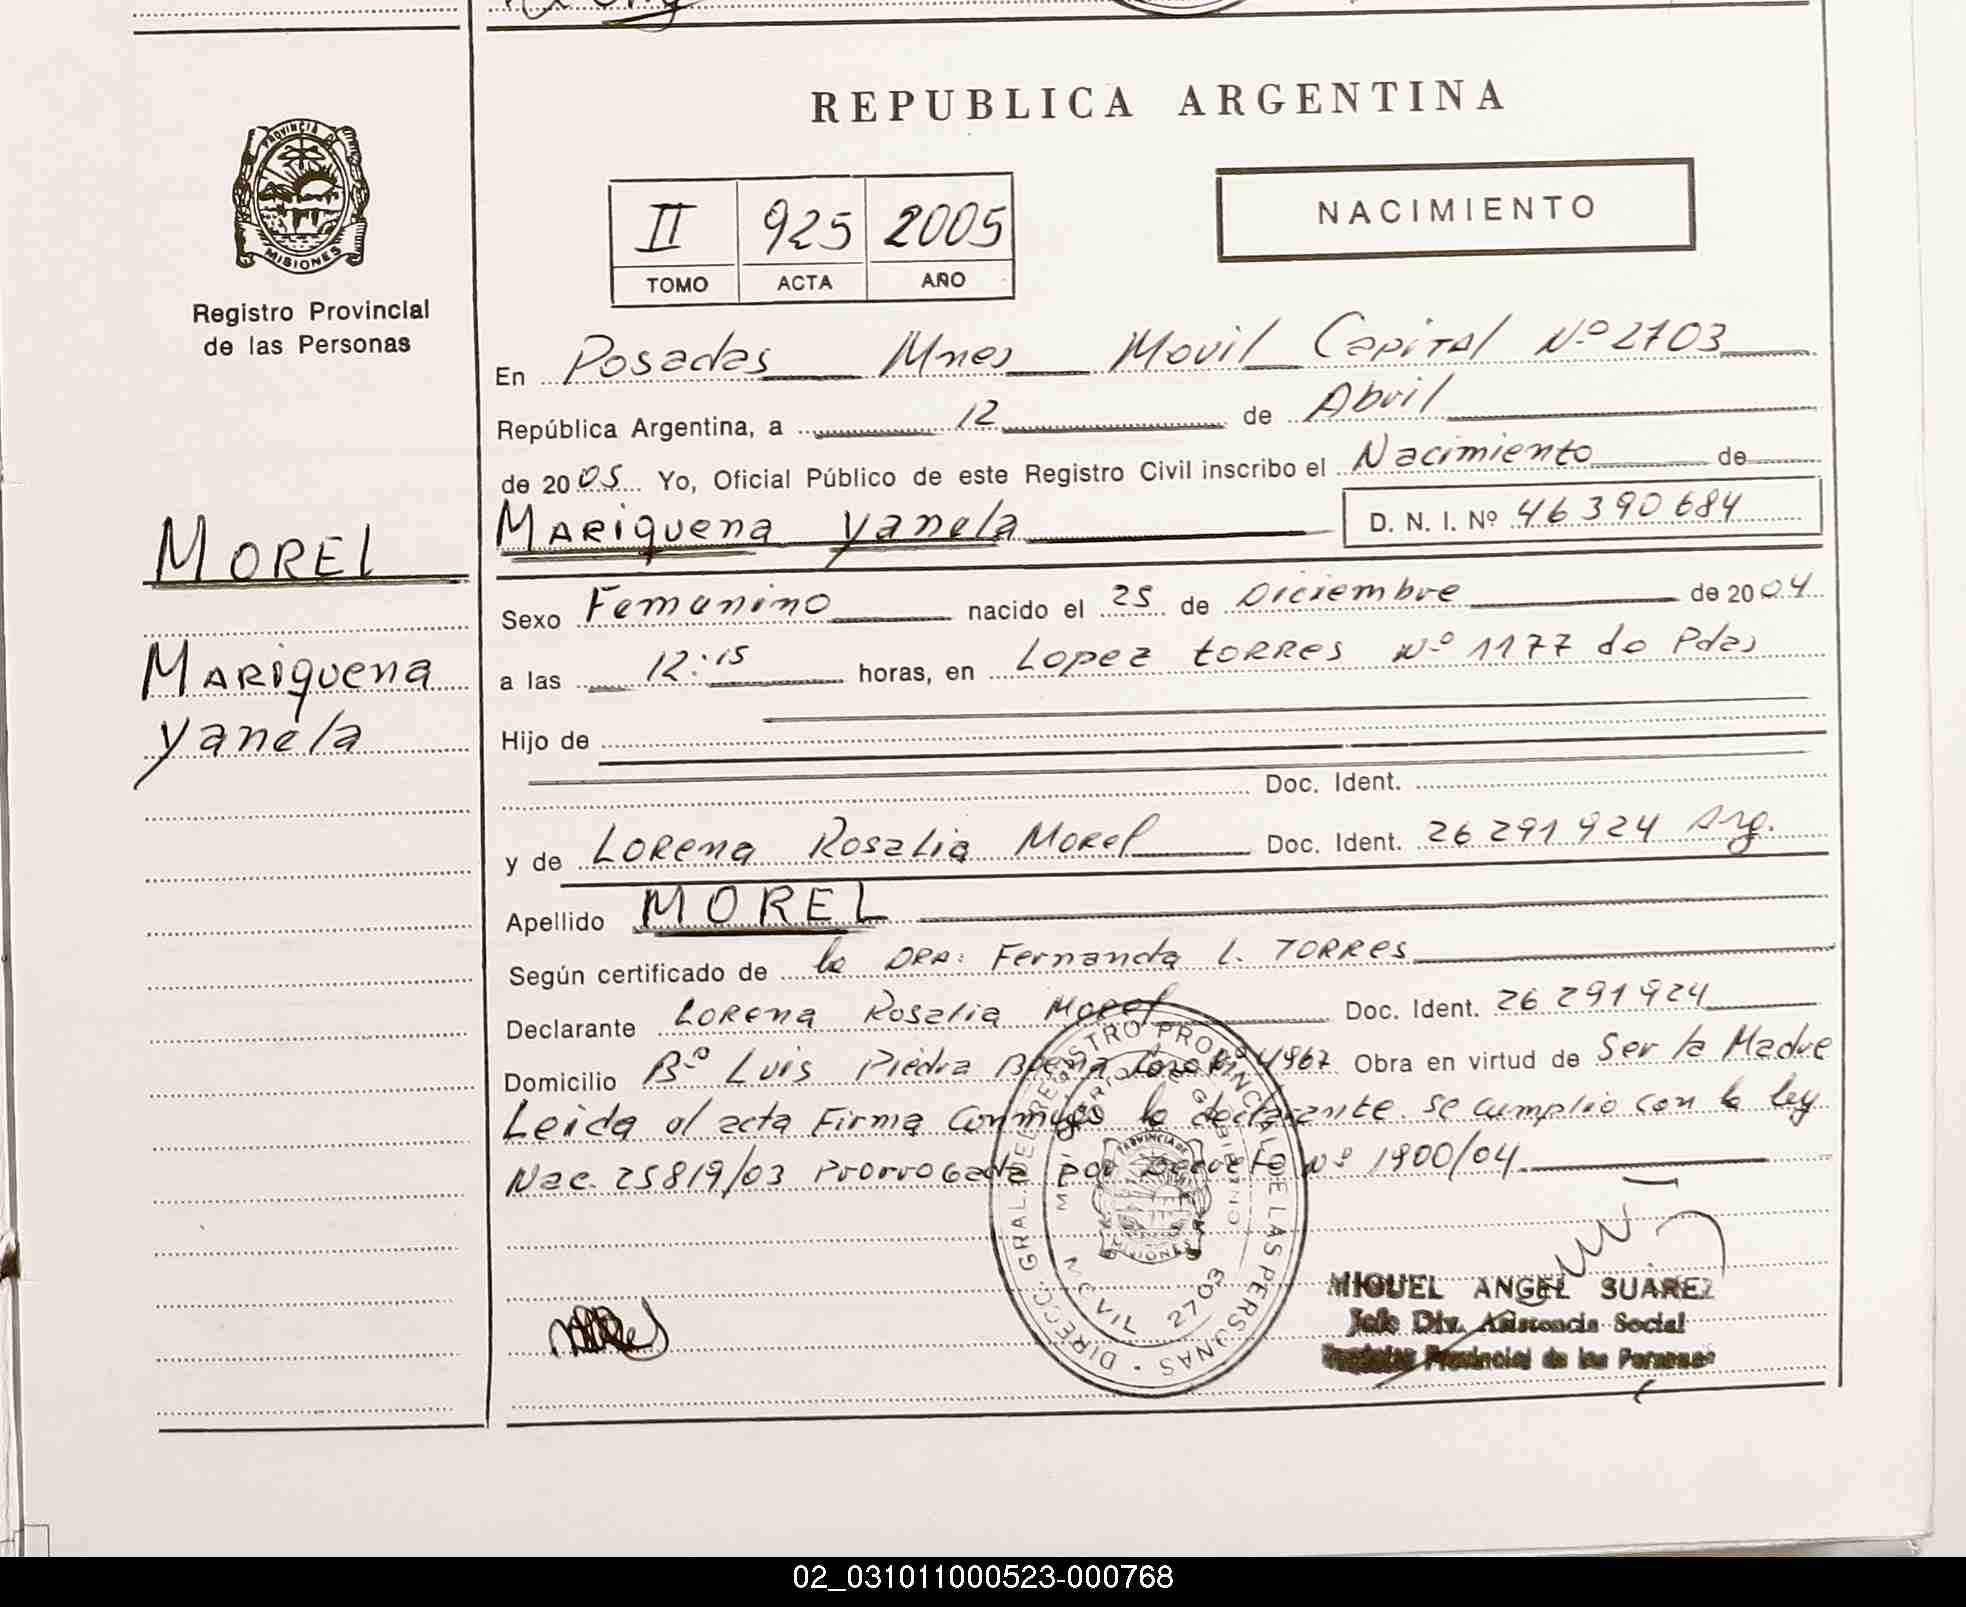 REPUBLICA ARGENTINA
PROVINCIA DE
MISIONES
Registro Provincial
de las Personas
II 925 2005
TOMO ACTA AÑO
NACIMIENTO
En Posadas Mnes Movil Capital Nº 2703
República Argentina, a 12 de Abril
de 2005 Yo, Oficial Público de este Registro Civil inscribo el Nacimiento de
Mariquena Yanela D. N. I. Nº 46 390 684
MOREL
Mariquena
Yanela
Sexo Femenino nacido el 25 de Diciembre de 2004
a las 12:15 horas, en Lopez Torres Nº 1177 de Pdas
Hijo de
Doc. Ident.
y de Lorena Rosalia Morel Doc. Ident. 26 291 924 Arg.
Apellido MOREL
Según certificado de la DRA: Fernanda L. Torres
Declarante Lorena Rosalia Morel Doc. Ident. 26 291 924
Domicilio Bº Luis Piedra Buena Nº 4967 Obra en virtud de Ser la Madre
Leida el acta Firma Conmigo la declarante. Se cumplio con la ley
Nac. 25819/03 Prorrogada por Decreto Nº 1900/04
DIRECC. GRAL. DEL REGISTRO PROVINCIAL DE LAS PERSONAS
MINISTERIO DE GOBIERNO
PROVINCIA DE
MISIONES
MOVIL 2703
MIGUEL ANGEL SUAREZ
Jefe Div. Asistencia Social
Registro Provincial de las Personas
02_031011000523-000768